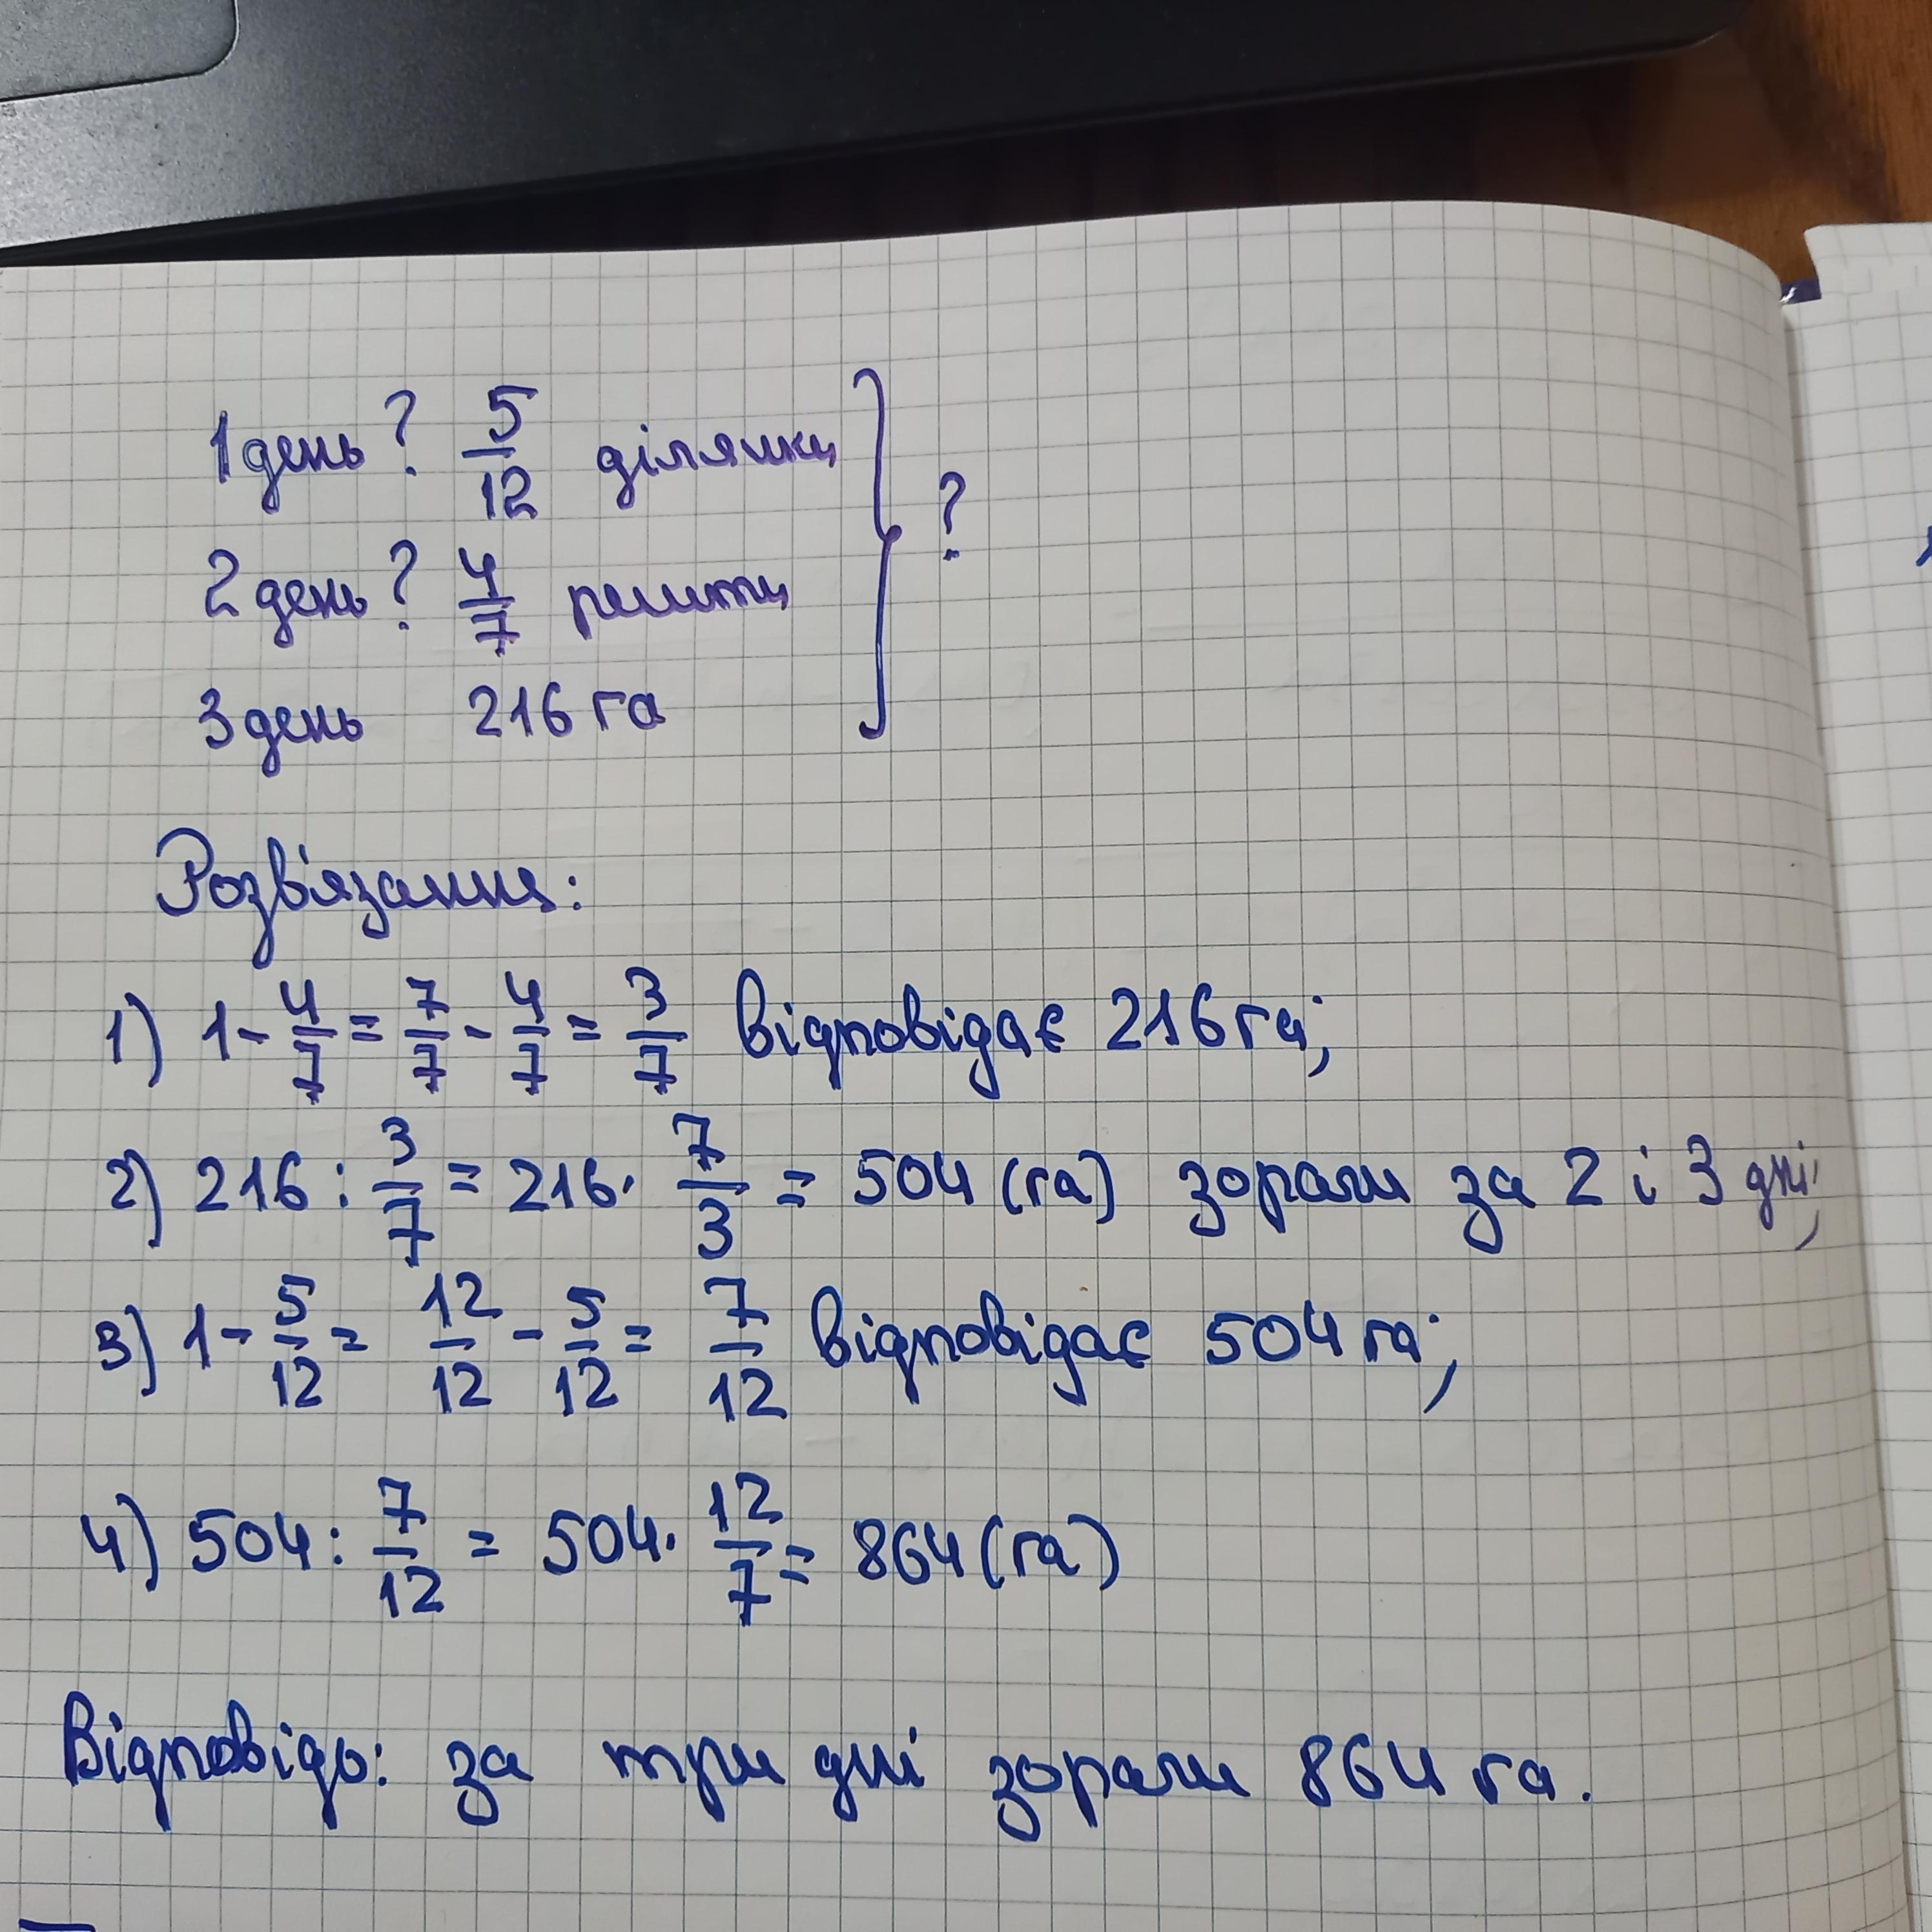 1 день ? 5/12 ділянки
?
2 день ? 4/7 решти
3 день 216 га
Розв'язання:
1) 1 - 4/7 = 7/7 - 4/7 = 3/7 відповідає 216 га;
2) 216 : 3/7 = 216 · 7/3 = 504 (га) зорали за 2 і 3 дні;
3) 1 - 5/12 = 12/12 - 5/12 = 7/12 відповідає 504 га;
4) 504 : 7/12 = 504 · 12/7 = 864 (га)
Відповідь: за три дні зорали 864 га.